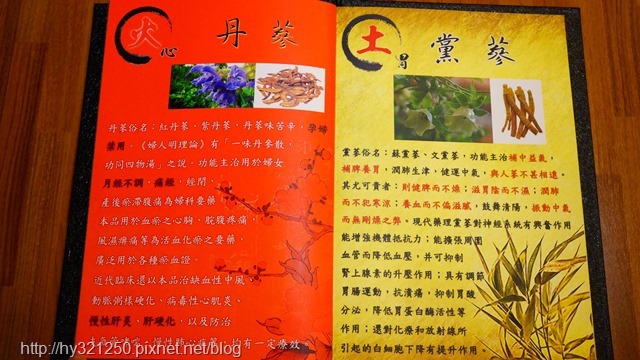 火心 丹蔘
丹蔘俗名：紅丹蔘，紫丹蔘，丹蔘味苦辛，孕婦
禁用。《婦人明理論》有「一味丹參散，
功同四物湯」之說。功能主治用於婦女
月經不調，痛經，經閉，
產後瘀滯腹痛為婦科要藥，
本品用於血瘀之心胸，脘腹疼痛，
風濕痹痛等為活血化瘀之要藥，
廣泛用於各種瘀血證。
近代臨床還以本品治缺血性中風，
動脈粥樣硬化，病毒性心肌炎，
慢性肝炎，肝硬化，以及防治
均有一定療效。
土胃 黨蔘
黨蔘俗名：蘇黨蔘、文黨蔘，功能主治補中益氣，
補脾養胃，潤肺生津，健運中氣，與人蔘不甚相遠。
其尤可貴者：則健脾而不燥；滋胃陰而不濕；潤肺
而不犯寒涼；養血而不偏滋膩，鼓舞清陽，振動中氣
而無剛燥之弊。現代藥理黨蔘對神經系統有興奮作用
能增強機體抵抗力；能擴張周圍
血管而降低血壓，並可抑制
腎上腺素的升壓作用；具有調節
胃腸運動，抗潰瘍，抑制胃酸
分泌，降低胃蛋白酶活性等
作用；還對化療和放射線所
引起的白細胞下降有提升作用
http://hy321250.pixnet.net/blog